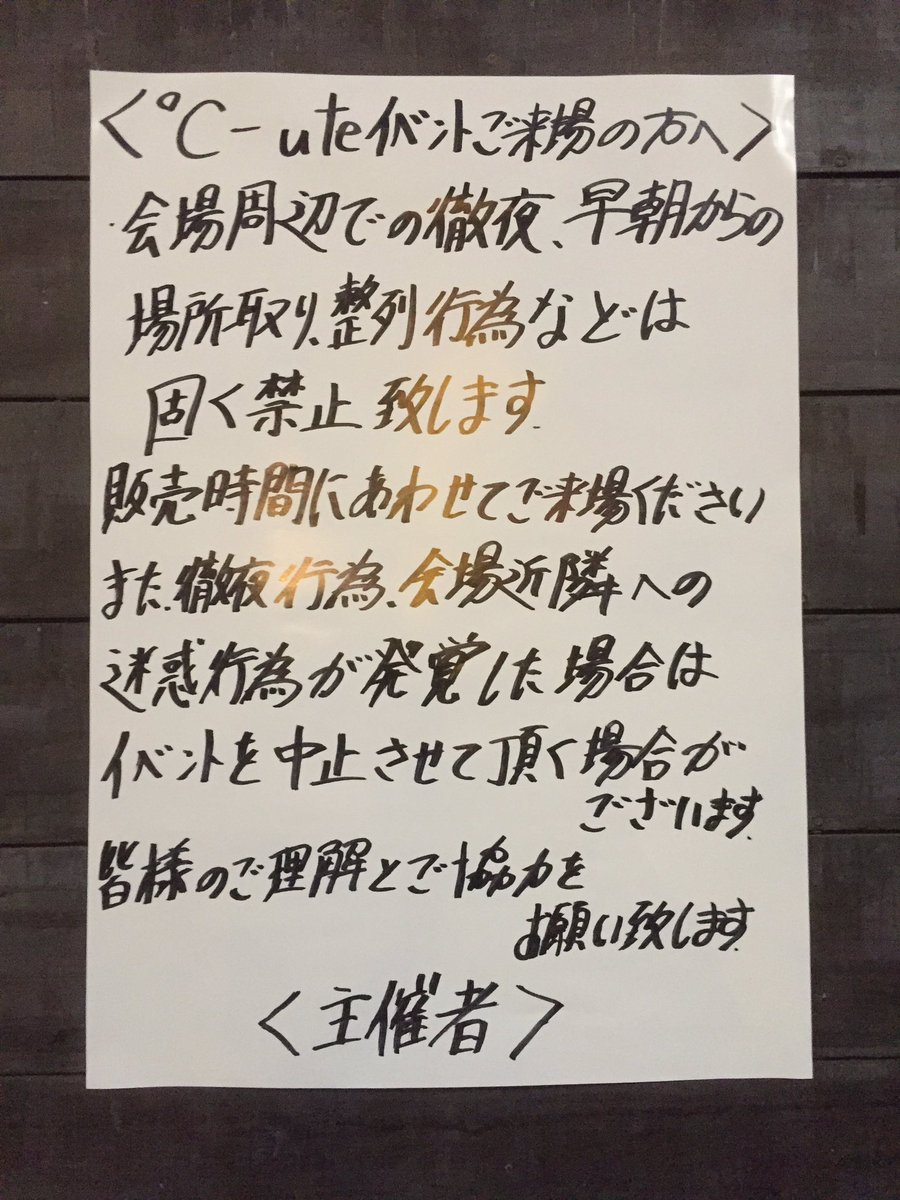 <℃-uteイベントご来場の方へ>
会場周辺での徹夜、早朝からの
場所取り、整列行為などは
固く禁止致します.
販売時間にあわせてご来場ください
また.徹夜行為、会場近隣への
迷惑行為が発覚した場合は
イベントを中止させて頂く場合が
ございます.
皆様のご理解とご協力を
お願い致します.
<主催者>